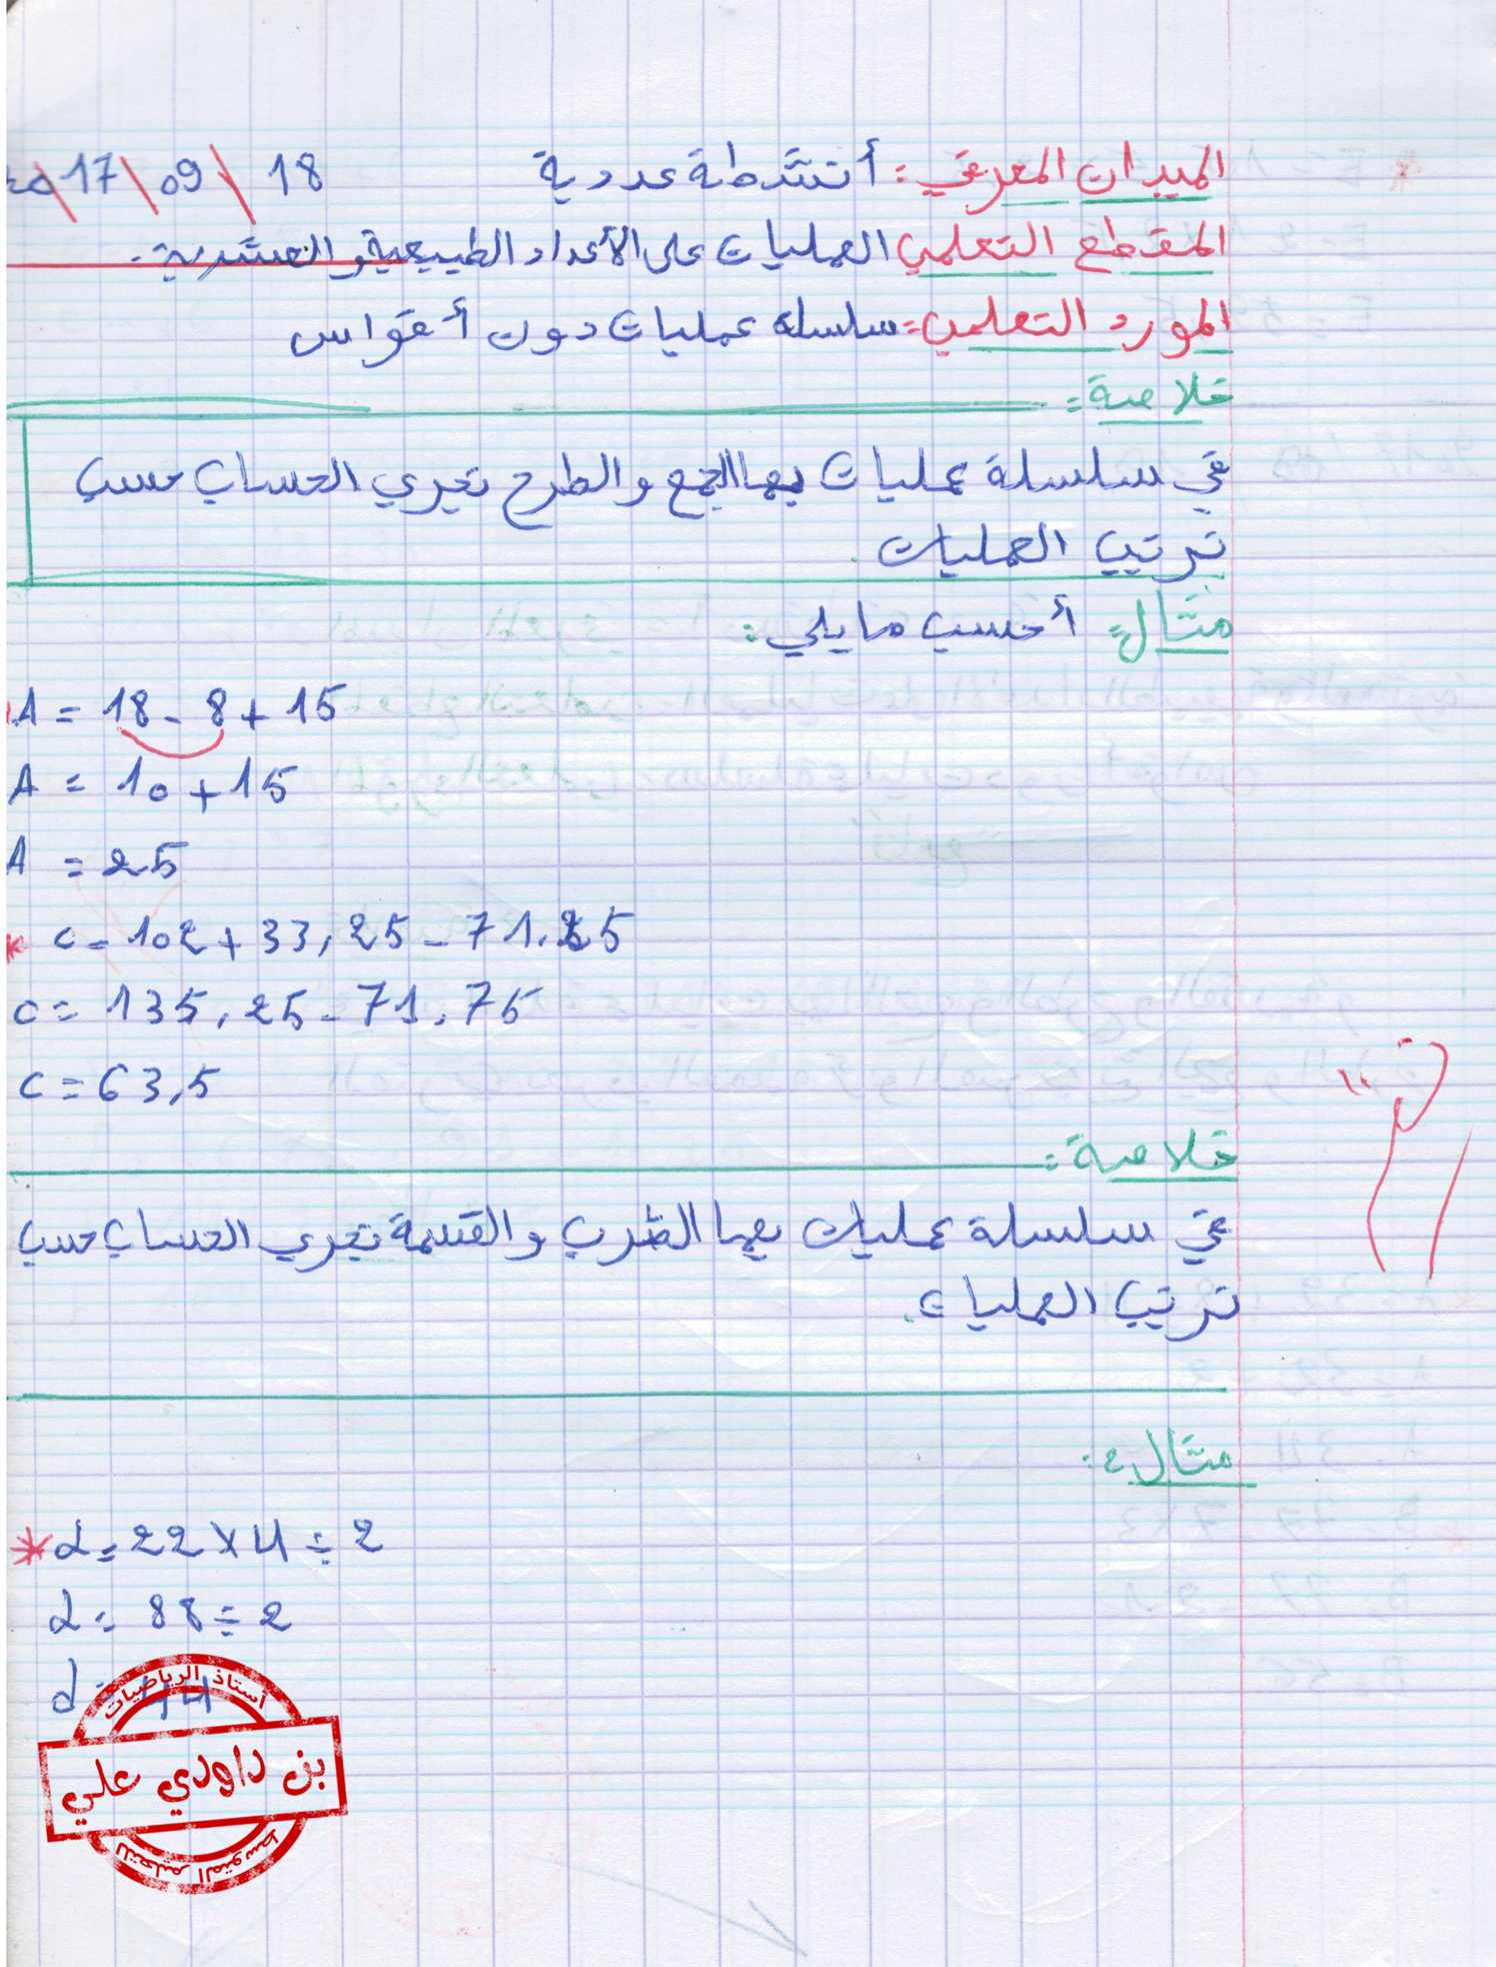 الميدان المعرفي: أنشطة عددية 18 \ 09 \ 17 \ 20
المقطع التعلمي العمليات على الأعداد الطبيعية والعشرية.
المورد التعلمي: سلسلة عمليات دون أقواس
خلاصة:
في سلسلة عمليات بها الجمع والطرح نجري الحساب حسب
ترتيب العمليات
مثال: أحسب ما يلي:
A = 18 - 8 + 15
A = 10 + 15
A = 25
* C = 102 + 33,25 - 71,25
C = 135,25 - 71,75
C = 63,5
خلاصة:
في سلسلة عمليات بها الضرب والقسمة نجري الحساب حسب
ترتيب العمليات.
مثال:
* d = 22 × 4 ÷ 2
d = 88 ÷ 2
d = 44
أستاذ الرياضيات
بن داودي علي
للتعليم المتوسط